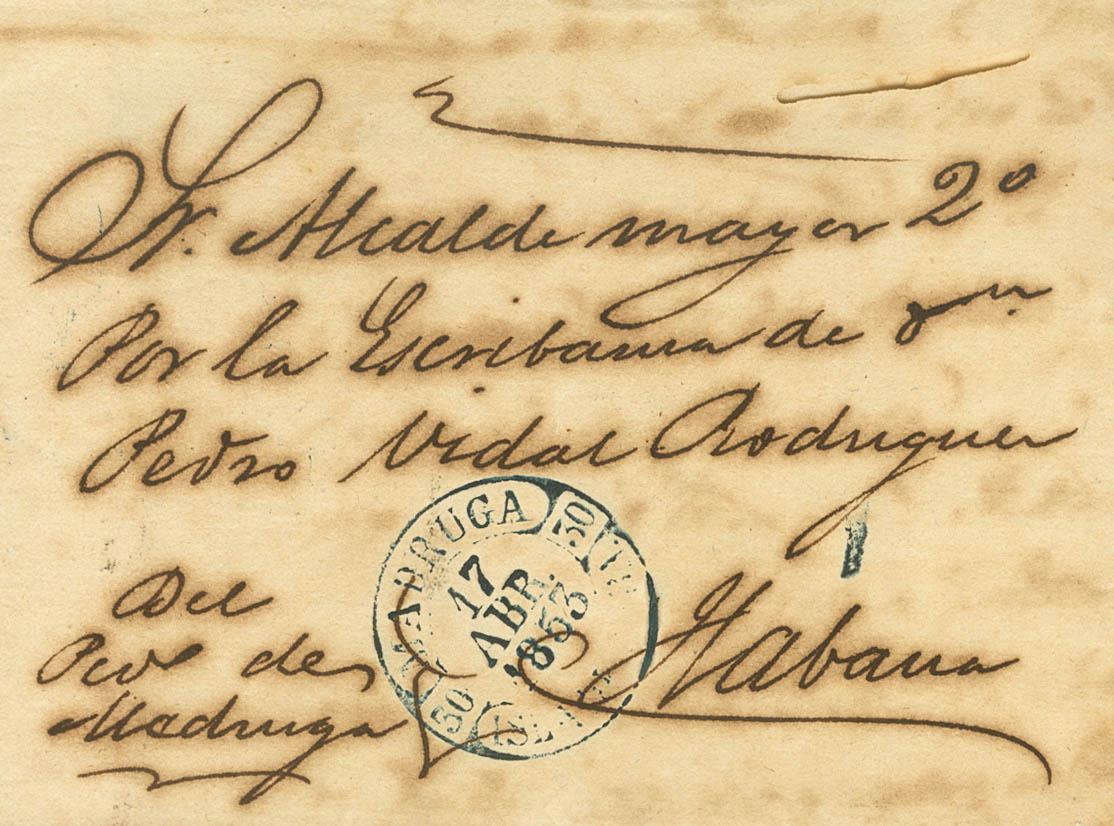 Sr. Alcalde mayor 2º
Por la Escribania de Dn
Pedro Vidal Rodriguez
Habana
Del
de
Madruga
MADRUGA
17
ABR.
1853
50
50